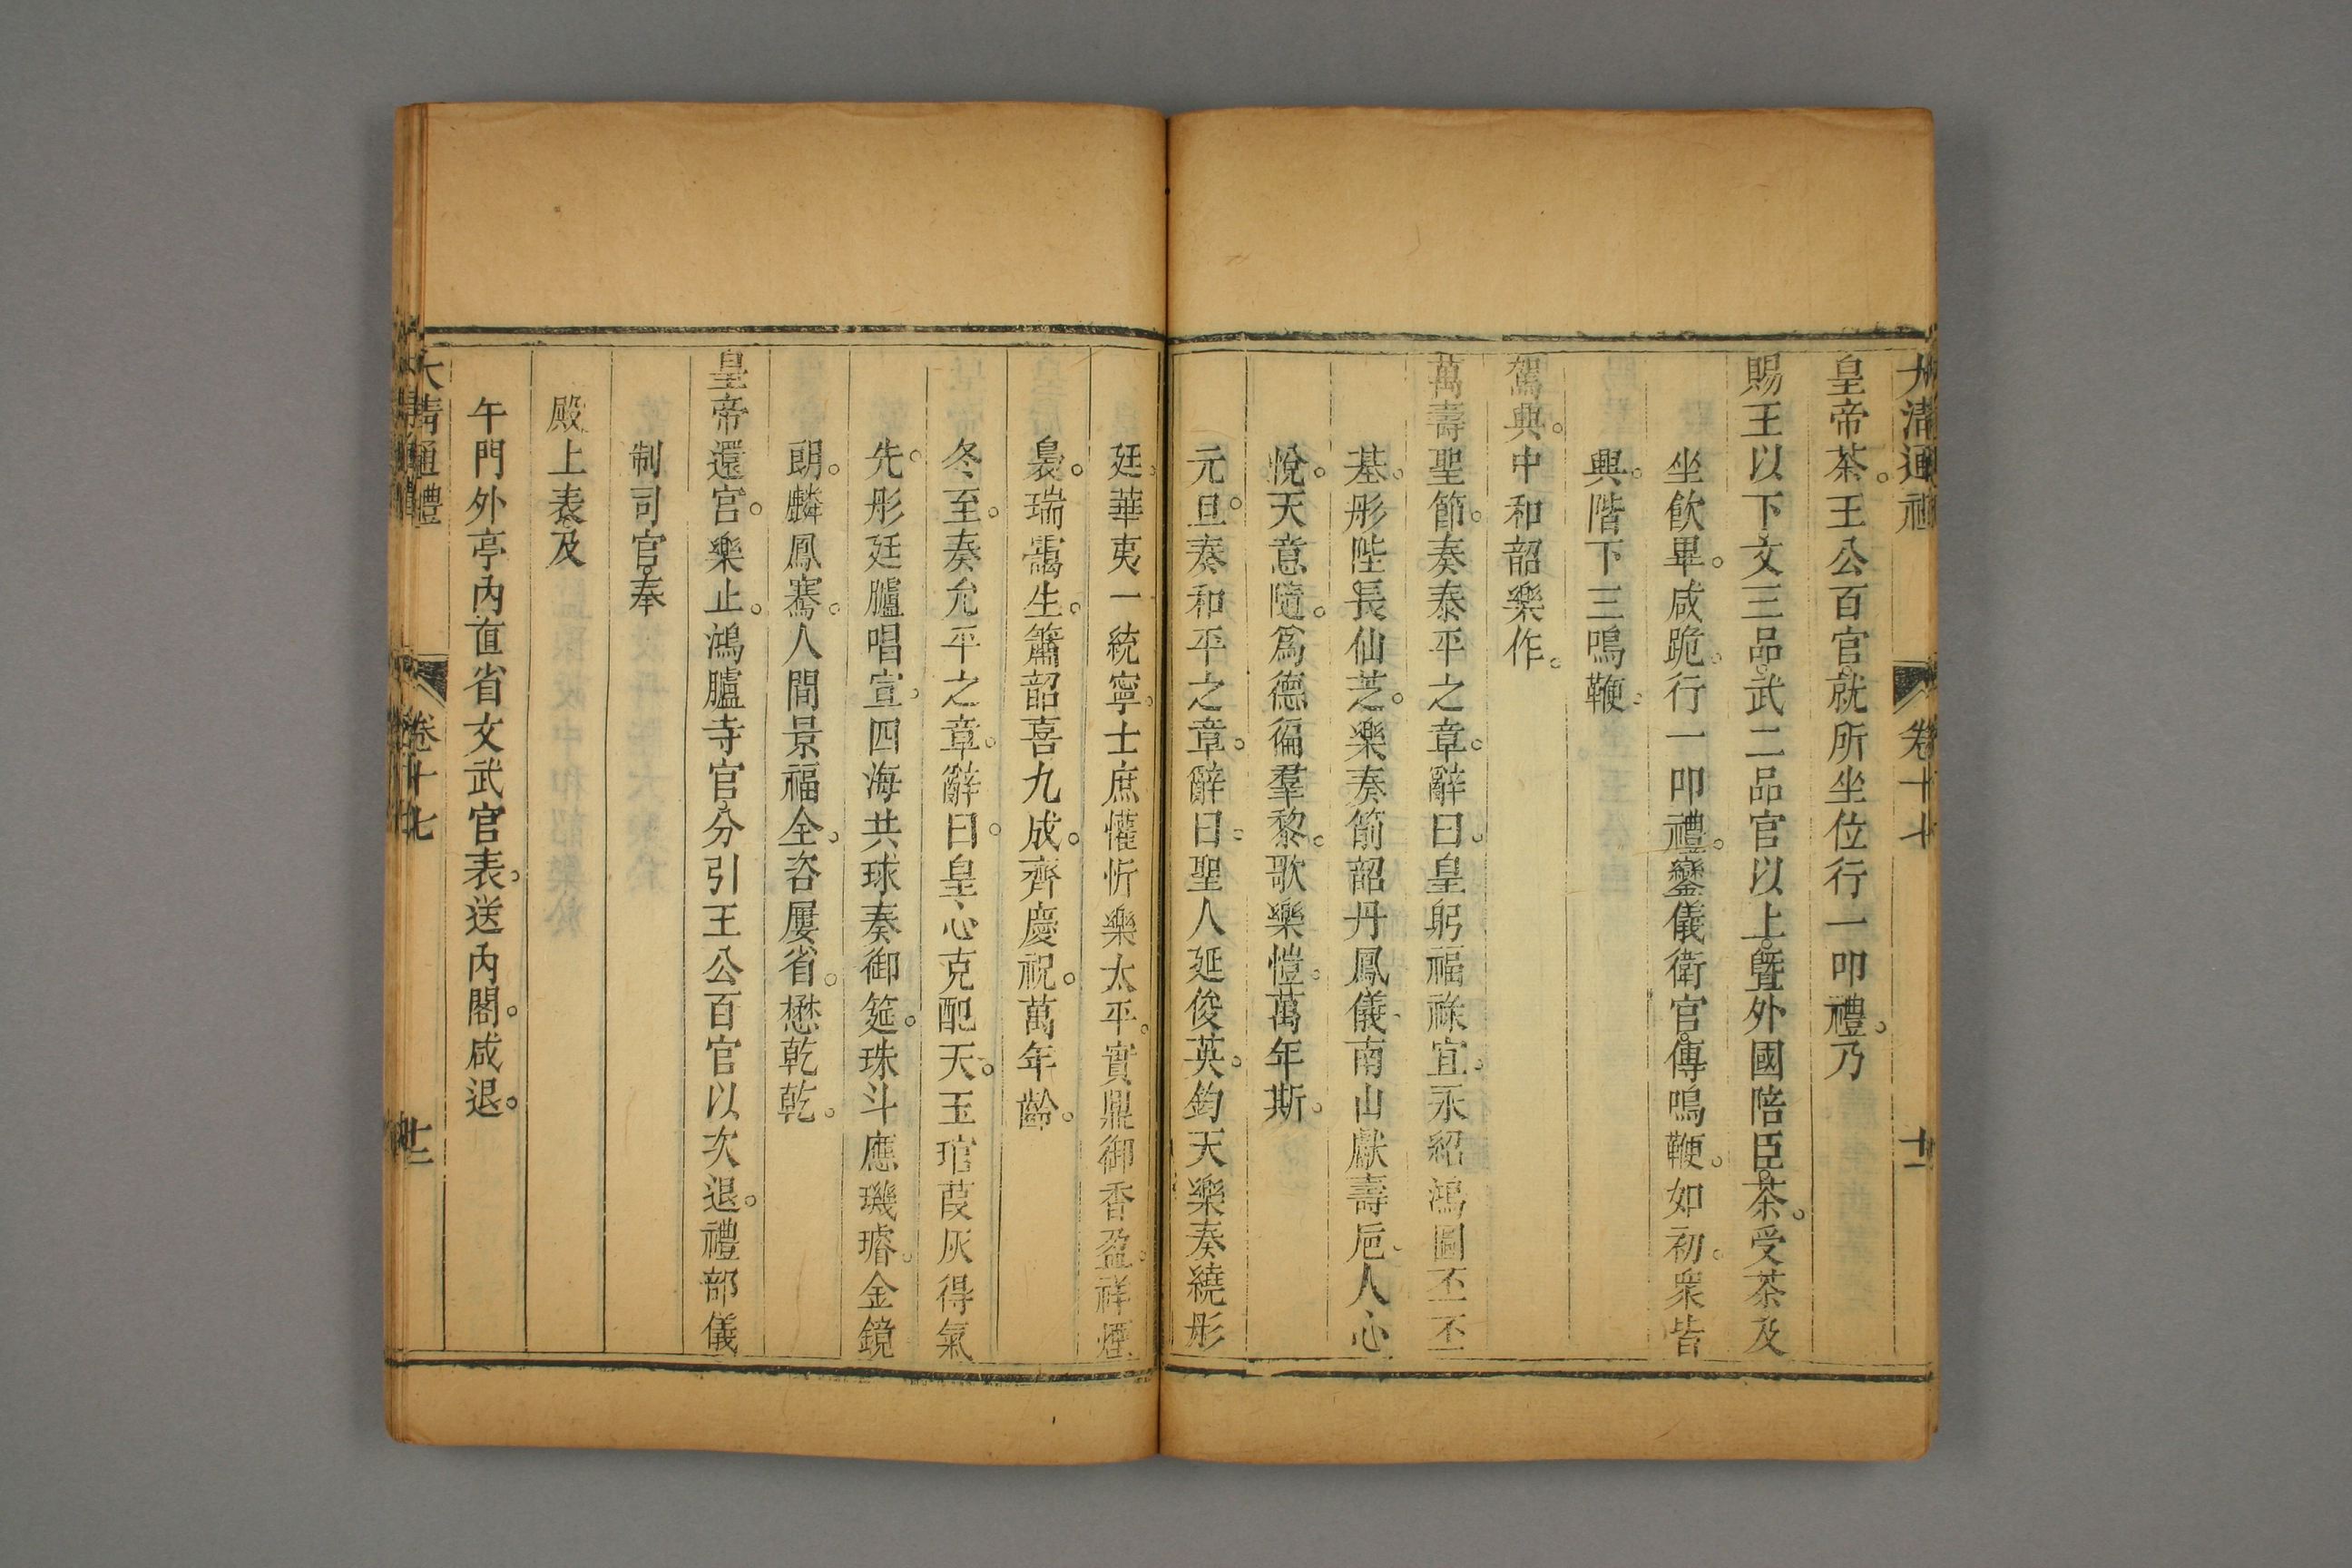 大清通禮 卷十七 十一
皇帝茶。王公百官。就所坐位行一叩禮。乃
賜王以下文三品。武二品官以上。曁外國陪臣。茶。受茶及
坐飲畢。咸跪。行一叩禮。鑾儀衛官。傳鳴鞭。如初。衆皆
興。階下三鳴鞭。
駕興。中和韶樂作。
萬壽聖節。奏泰平之章。辭曰。皇躬福祿宜。永紹鴻圖丕丕
基。彤陛長仙芝。樂奏簫韶丹鳳儀。南山獻壽巵。人心
悅。天意隨。爲德徧羣黎。歌樂愷。萬年斯。
元旦。奏和平之章。辭曰。聖人延俊英。鈞天樂奏繞彤
廷。華夷一統寧。士庶懽忻樂太平。寶鼎御香盈。祥煙
裊。瑞靄生。簫韶喜九成。齊慶祝。萬年齡。
冬至。奏允平之章。辭曰。皇心克配天。玉琯葭灰得氣
先。彤廷臚唱宣。四海共球奏御筵。珠斗應璣璿。金鏡
朗。麟鳳騫。人間景福全。咨屢省。懋乾乾。
皇帝還宫。樂止。鴻臚寺官。分引王公百官以次退。禮部儀
制司官。奉
殿上表及
午門外亭内直省文武官表。送内閣。咸退。
大清通禮 卷十七 十二